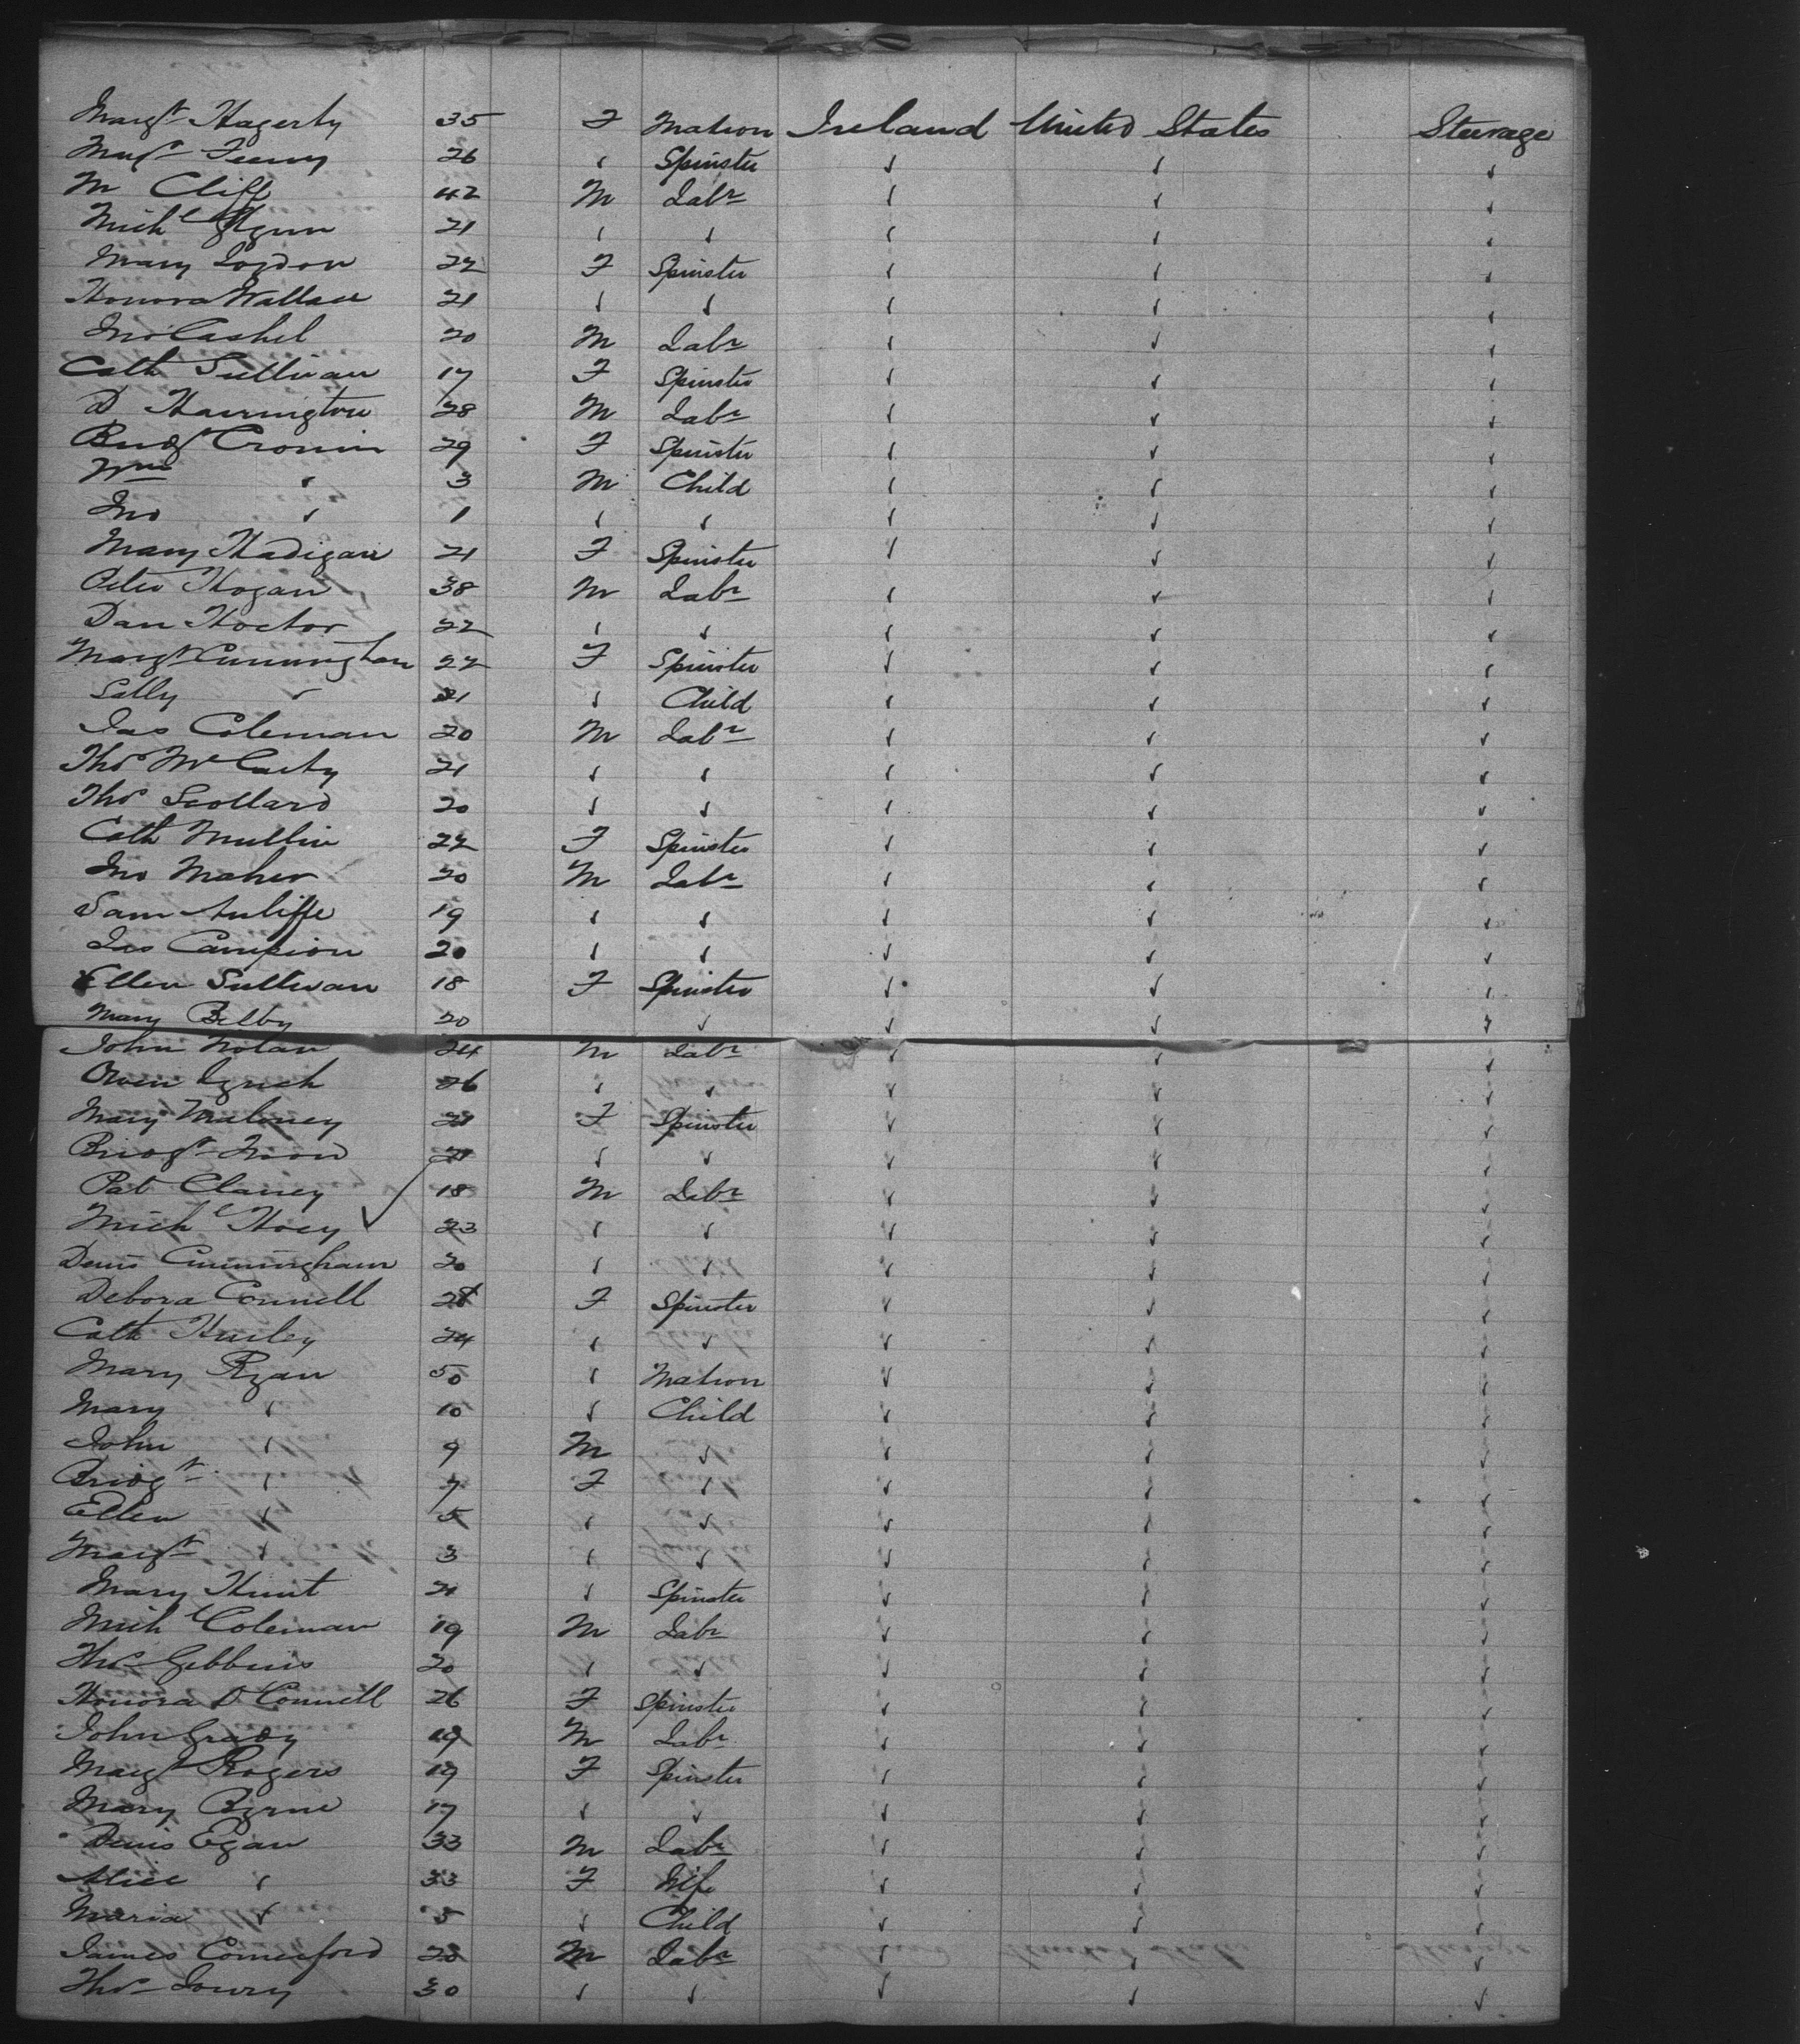 Margt Hagerty 35 F Matron Ireland United States Steerage
Margt Feeny 26 ✓ Spinster ✓ ✓ ✓
M Cliff 42 M Labr ✓ ✓ ✓
Michl Flynn 21 ✓ ✓ ✓ ✓ ✓
Mary 22 F Spinster ✓ ✓ ✓
Honora Wallace 21 ✓ ✓ ✓ ✓ ✓
Jno Cashel 20 M Labr ✓ ✓ ✓
Cath Sullivan 17 F Spinster ✓ ✓ ✓
D Harrington 28 M Labr ✓ ✓ ✓
Bridgt Cronin 29 F Spinster ✓ ✓ ✓
Wm ✓ 3 M Child ✓ ✓ ✓
Jno ✓ 1 ✓ ✓ ✓ ✓ ✓
Mary Hadigan 21 F Spinster ✓ ✓ ✓
Peter Hogan 38 M Labr ✓ ✓ ✓
Dan Hoctor 22 ✓ ✓ ✓ ✓ ✓
Margt Cunningham 22 F Spinster ✓ ✓ ✓
Sally ✓ ✓ Child ✓ ✓ ✓
Jas Coleman 20 M Labr ✓ ✓ ✓
Thos McCarty 21 ✓ ✓ ✓ ✓ ✓
Thos Scollard 20 ✓ ✓ ✓ ✓ ✓
Cath Mullin 22 F Spinster ✓ ✓ ✓
Jno Maher 20 M Labr ✓ ✓ ✓
Sam Auliffe 19 ✓ ✓ ✓ ✓ ✓
Jas Campion 20 ✓ ✓ ✓ ✓ ✓
Ellen Sullivan 18 F Spinster ✓ ✓ ✓
Mary Bilby 20 ✓ ✓ ✓ ✓
John Nolan 24 M Labr ✓ ✓ ✓
Owen Lynch 26 ✓ ✓ ✓ ✓ ✓
Mary Maloney F Spinster ✓ ✓ ✓
Bridgt 21 ✓ ✓ ✓ ✓ ✓
Pat Clancy 18 M Labr ✓ ✓ ✓
Michl Hoey ✓ 23 ✓ ✓ ✓ ✓ ✓
Denis Cunningham 20 ✓ ✓ ✓ ✓ ✓
Debora Connell 28 F Spinster ✓ ✓ ✓
Cath Hurley 24 ✓ ✓ ✓ ✓ ✓
Mary Ryan 50 ✓ Matron ✓ ✓ ✓
Mary ✓ 10 ✓ Child ✓ ✓ ✓
John ✓ 9 M ✓ ✓ ✓ ✓
Bridgt ✓ 7 F ✓ ✓ ✓ ✓
Ellen ✓ 5 ✓ ✓ ✓ ✓ ✓
Margt ✓ 3 ✓ ✓ ✓ ✓ ✓
Mary Hunt 21 ✓ Spinster ✓ ✓ ✓
Michl Coleman 19 M Labr ✓ ✓ ✓
Thos Gibbins 20 ✓ ✓ ✓ ✓ ✓
Honora O Connell 26 F Spinster ✓ ✓ ✓
John Grady 19 M Labr ✓ ✓ ✓
Margt Rogers 19 F Spinster ✓ ✓ ✓
Mary Byrne 17 ✓ ✓ ✓ ✓ ✓
Denis Egan 33 M Labr ✓ ✓ ✓
Alice ✓ 33 F Wife ✓ ✓ ✓
Maria ✓ 5 ✓ Child ✓ ✓ ✓
James Comerford 20 M Labr ✓ ✓ ✓
Thos Lowry 30 ✓ ✓ ✓ ✓ ✓